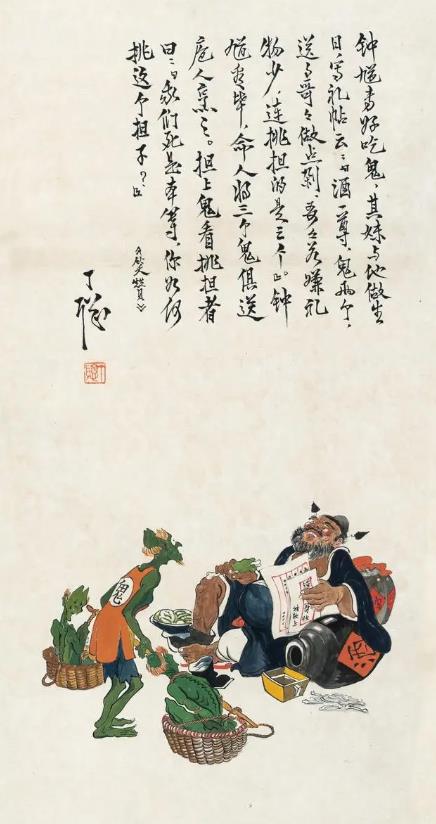 钟馗专好吃鬼，其妹与他做生
日，写礼帖云：“酒一尊，鬼两个，
送与哥々做点剁，哥々若嫌礼
物少，连挑担的是三个。”钟
馗看毕，命人将三个鬼俱送
庖人烹之。担上鬼看挑担者
曰：“我们死是本等，你如何
挑这个担子？”
《笑赞》
丁聪
鬼
酒